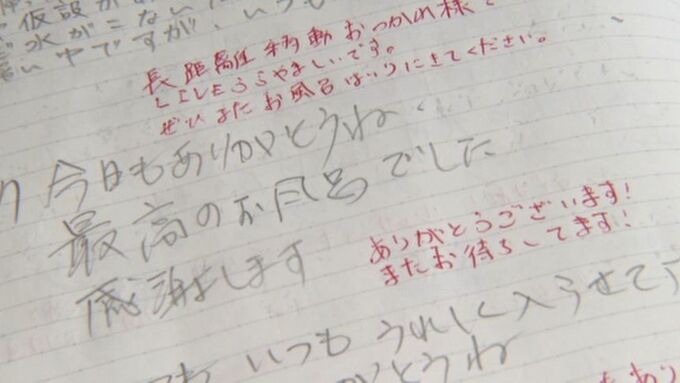 仮設が
水がこない
い中ですが、いつも
長距離移動おつかれ様で
うらやましいです。
ぜひまたお風呂はいりにきてください。
7 今日もありがとうね
最高のお風呂でした
感謝します
ありがとうございます!
またお待ちしてます!
いつもうれしく入らせて
がとうね
あり